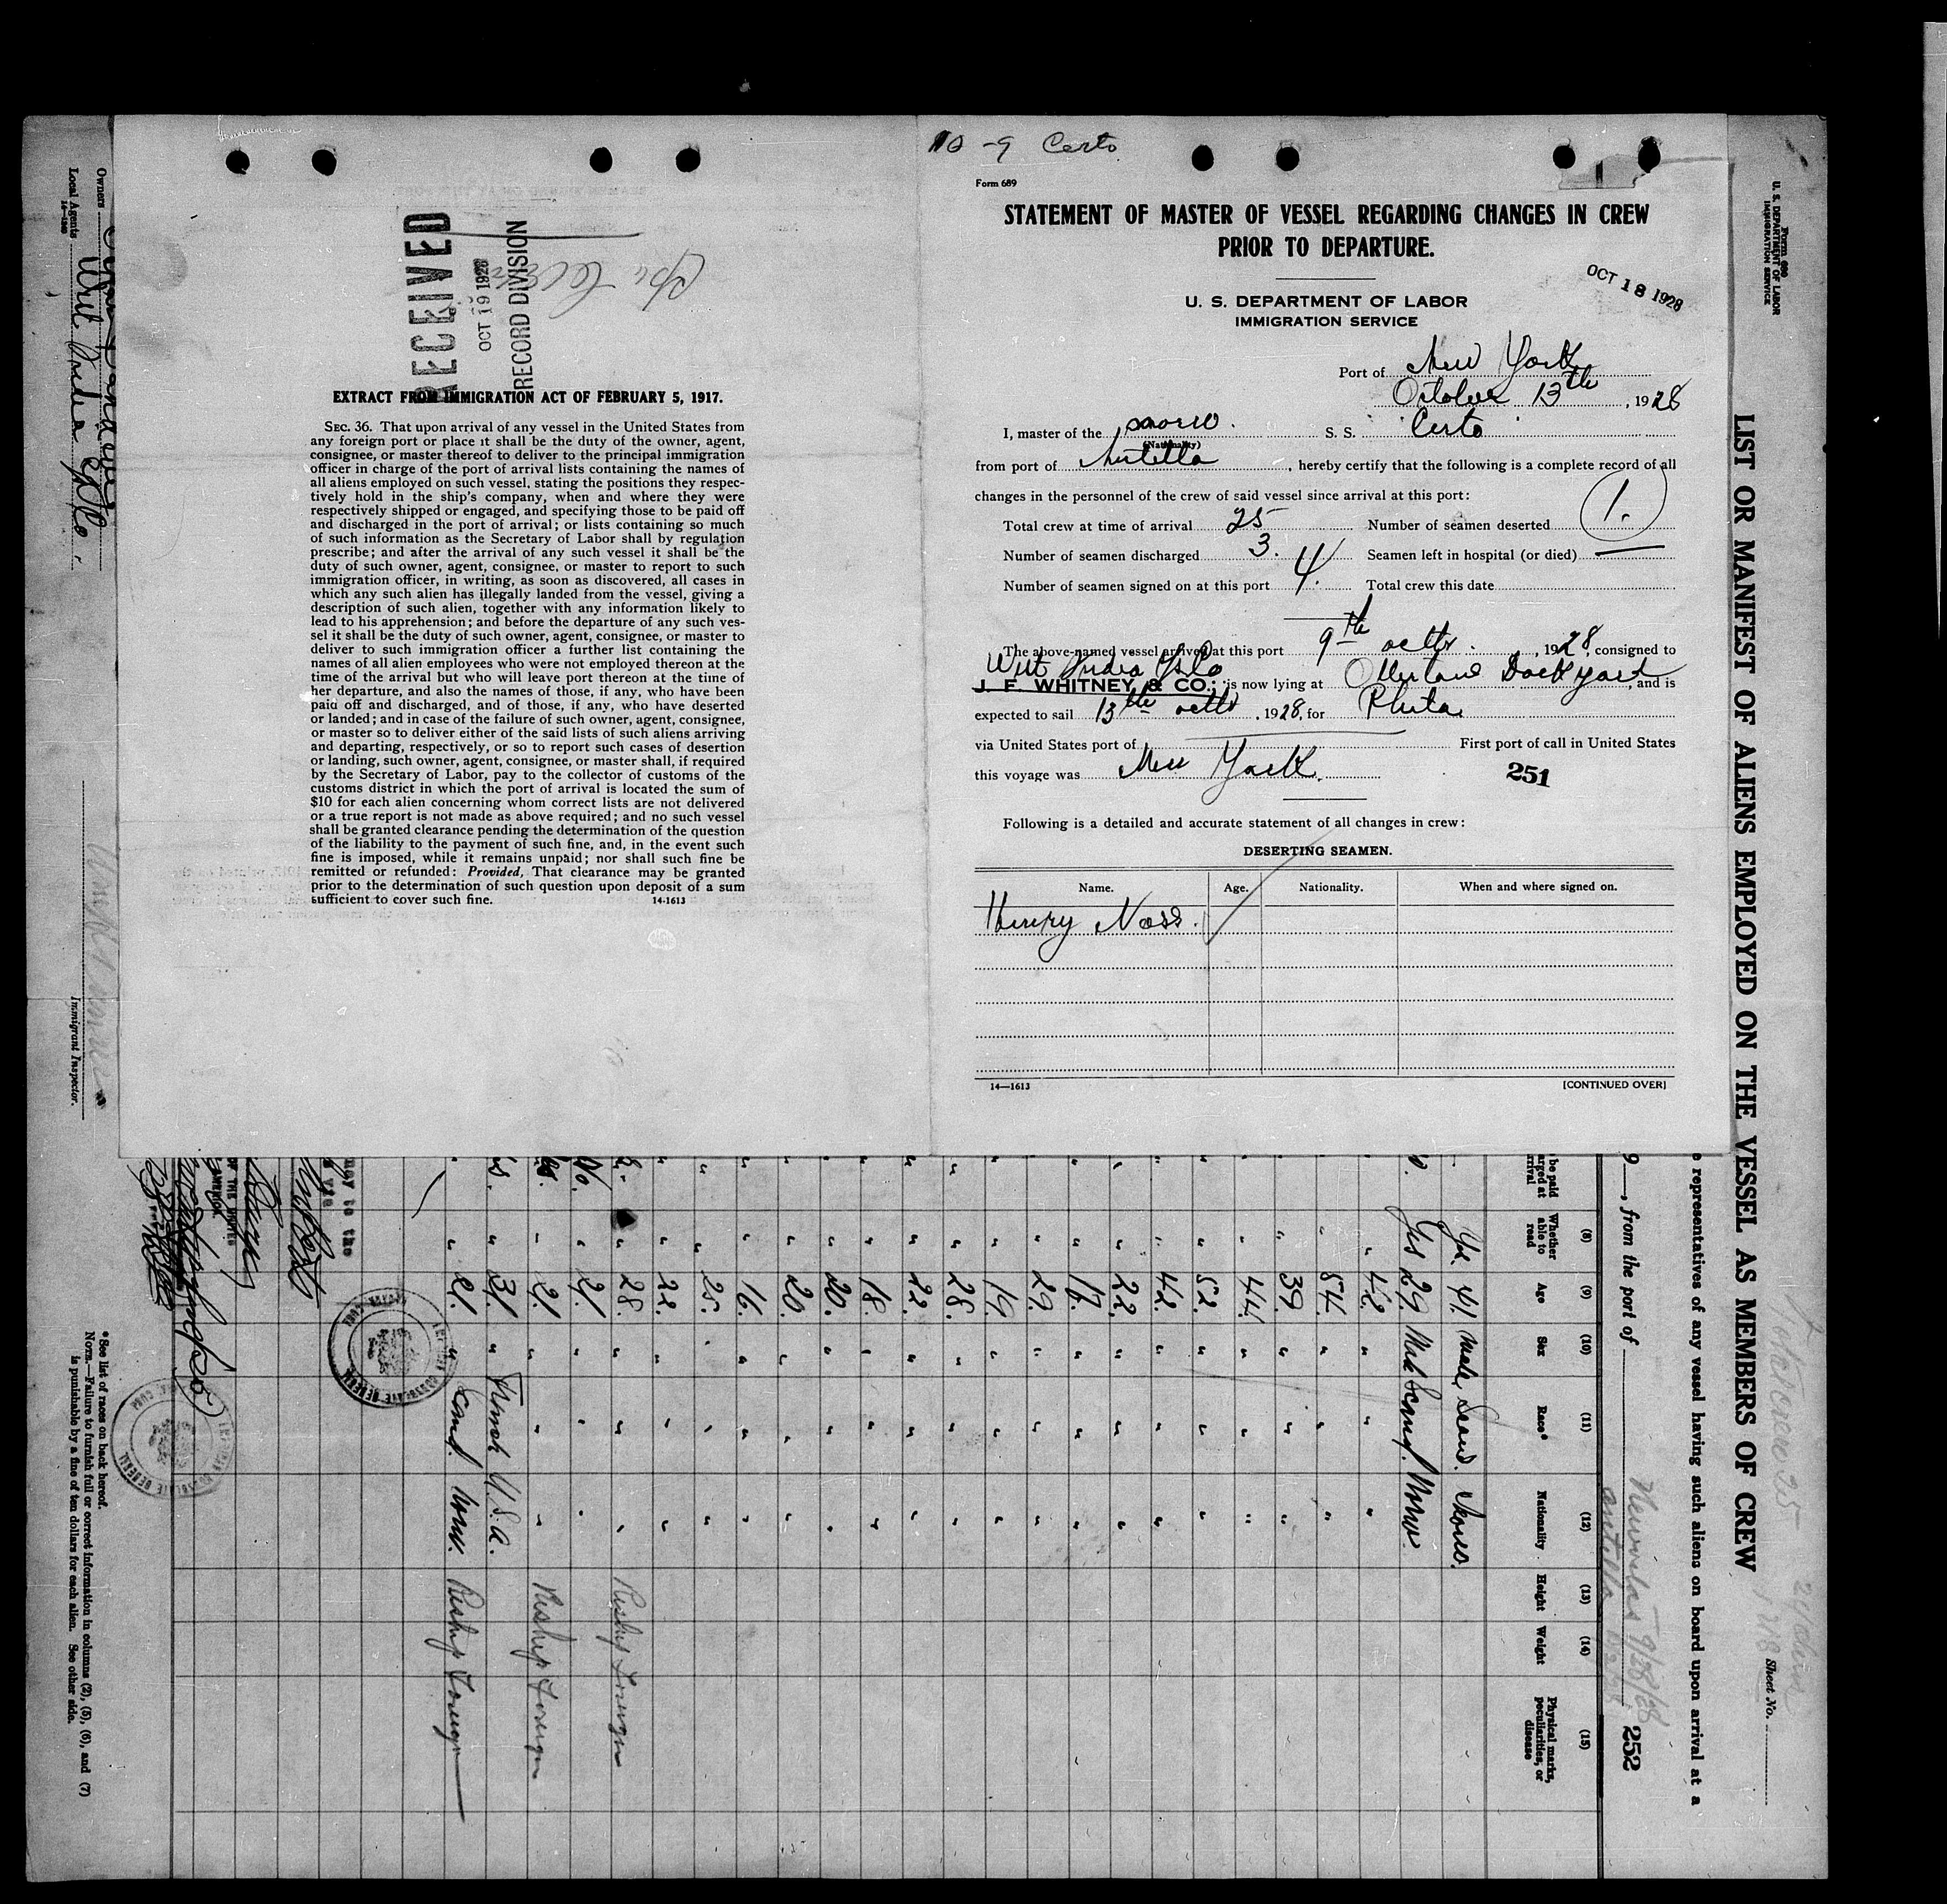 10-9 Certo
Form 689
STATEMENT OF MASTER OF VESSEL REGARDING CHANGES IN CREW
PRIOR TO DEPARTURE.
U. S. DEPARTMENT OF LABOR
IMMIGRATION SERVICE
OCT 18 1928
Port of New York
October 13th, 1928
I, master of the S. S. Certo
(Nationality)
from port of Antilla, hereby certify that the following is a complete record of all
changes in the personnel of the crew of said vessel since arrival at this port:
Total crew at time of arrival 25 Number of seamen deserted 1.
Number of seamen discharged 3. Seamen left in hospital (or died) —
Number of seamen signed on at this port 4. Total crew this date
The above-named vessel arrived at this port 9th octbr., 1928, consigned to
West India
J. F. WHITNEY & CO.; is now lying at Dockyard, and is
expected to sail 13th octbr, 1928, for Phila
via United States port of First port of call in United States
this voyage was New York.
251
Following is a detailed and accurate statement of all changes in crew:
DESERTING SEAMEN.
Name. Age. Nationality. When and where signed on.
Henry Nass.
14—1613 [CONTINUED OVER]
RECEIVED
OCT 19 1928
RECORD DIVISION
EXTRACT FROM IMMIGRATION ACT OF FEBRUARY 5, 1917.
SEC. 36. That upon arrival of any vessel in the United States from
any foreign port or place it shall be the duty of the owner, agent,
consignee, or master thereof to deliver to the principal immigration
officer in charge of the port of arrival lists containing the names of
all aliens employed on such vessel, stating the positions they respec-
tively hold in the ship's company, when and where they were
respectively shipped or engaged, and specifying those to be paid off
and discharged in the port of arrival; or lists containing so much
of such information as the Secretary of Labor shall by regulation
prescribe; and after the arrival of any such vessel it shall be the
duty of such owner, agent, consignee, or master to report to such
immigration officer, in writing, as soon as discovered, all cases in
which any such alien has illegally landed from the vessel, giving a
description of such alien, together with any information likely to
lead to his apprehension; and before the departure of any such ves-
sel it shall be the duty of such owner, agent, consignee, or master to
deliver to such immigration officer a further list containing the
names of all alien employees who were not employed thereon at the
time of the arrival but who will leave port thereon at the time of
her departure, and also the names of those, if any, who have been
paid off and discharged, and of those, if any, who have deserted
or landed; and in case of the failure of such owner, agent, consignee,
or master so to deliver either of the said lists of such aliens arriving
and departing, respectively, or so to report such cases of desertion
or landing, such owner, agent, consignee, or master shall, if required
by the Secretary of Labor, pay to the collector of customs of the
customs district in which the port of arrival is located the sum of
$10 for each alien concerning whom correct lists are not delivered
or a true report is not made as above required; and no such vessel
shall be granted clearance pending the determination of the question
of the liability to the payment of such fine, and, in the event such
fine is imposed, while it remains unpaid; nor shall such fine be
remitted or refunded: Provided, That clearance may be granted
prior to the determination of such question upon deposit of a sum
sufficient to cover such fine.
14-1613
Form 680
U. S. DEPARTMENT OF LABOR
IMMIGRATION SERVICE
LIST OR MANIFEST OF ALIENS EMPLOYED ON THE VESSEL AS MEMBERS OF CREW
Sheet No.
representatives of any vessel having such aliens on board upon arrival at a
9 , from the port of
Antilla
252
be paid
arrival
(8) (9) (10) (11) (12) (13) (14) (15)
Whether able to read Age Sex Race* Nationality Height Weight Physical marks, peculiarities, or disease
Yes 41. Male Scand. Norw.
Yes 29. Male Scand. Norw.
" 42. " " "
" 54. " " "
" 39. " " "
" 44. " " "
" 52. " " "
" 42. " " "
" 22. " " "
" 17. " " "
" 29. " " "
" 19. " " "
" 28. " " "
" 22. " " "
" 18. " " "
" 20. " " "
" 20. " " "
" 16. " " "
" 25. " " "
" 22. " " "
" 28. " " " Reship Foreign
No. " 21. " " "
" 21. " " " Reship Foreign
" 31. " U.S.A.
" 21. " Scand. Norw. Reship Foreign
*See list of races on back hereof.
NOTE.—Failure to furnish full or correct information in columns (2), (5), (6), and (7)
is punishable by a fine of ten dollars for each alien. See other side.
Owners
Local Agents West India
Immigrant Inspector.